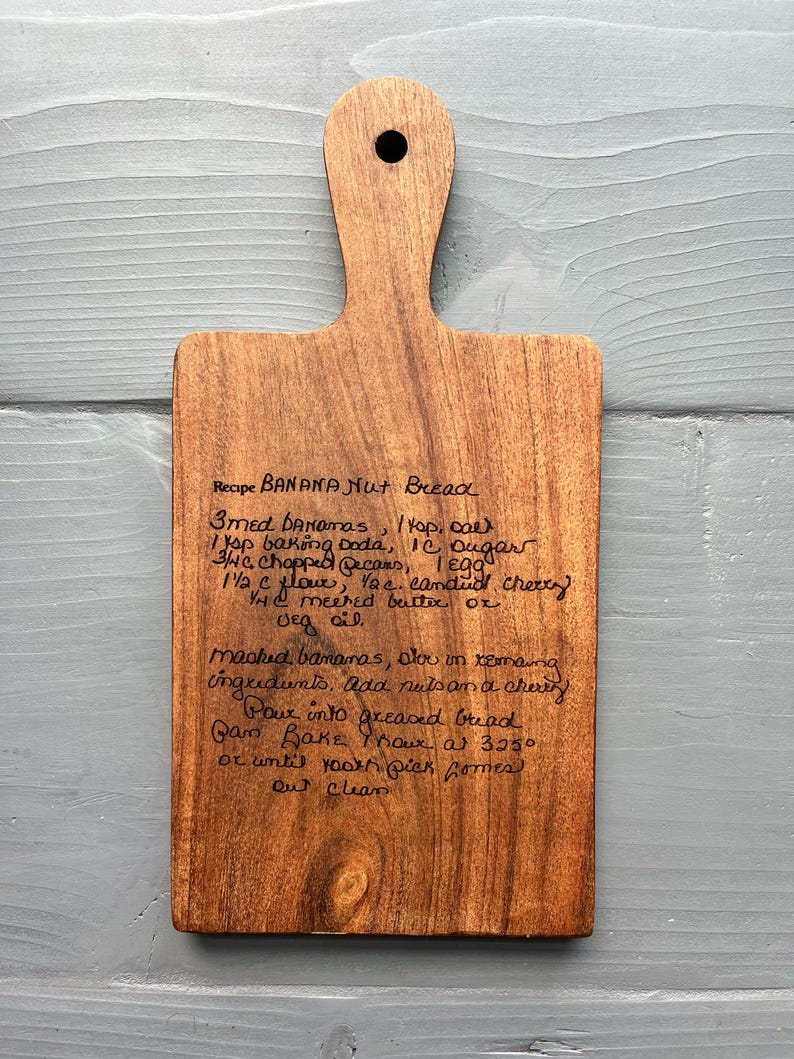 Recipe BANANA Nut Bread
3 med bananas, 1 tsp. salt
1 tsp baking soda, 1 c sugar
3/4 c. chopped pecans, 1 egg
1 1/2 c flour, 1/2 c. candied cherry
1/4 c melted butter or
veg oil.
mashed bananas, stir in remaing
ingredients. Add nuts and cherry
Pour into greased bread
Pan Bake 1 hour at 325°
or until tooth pick comes
out clean